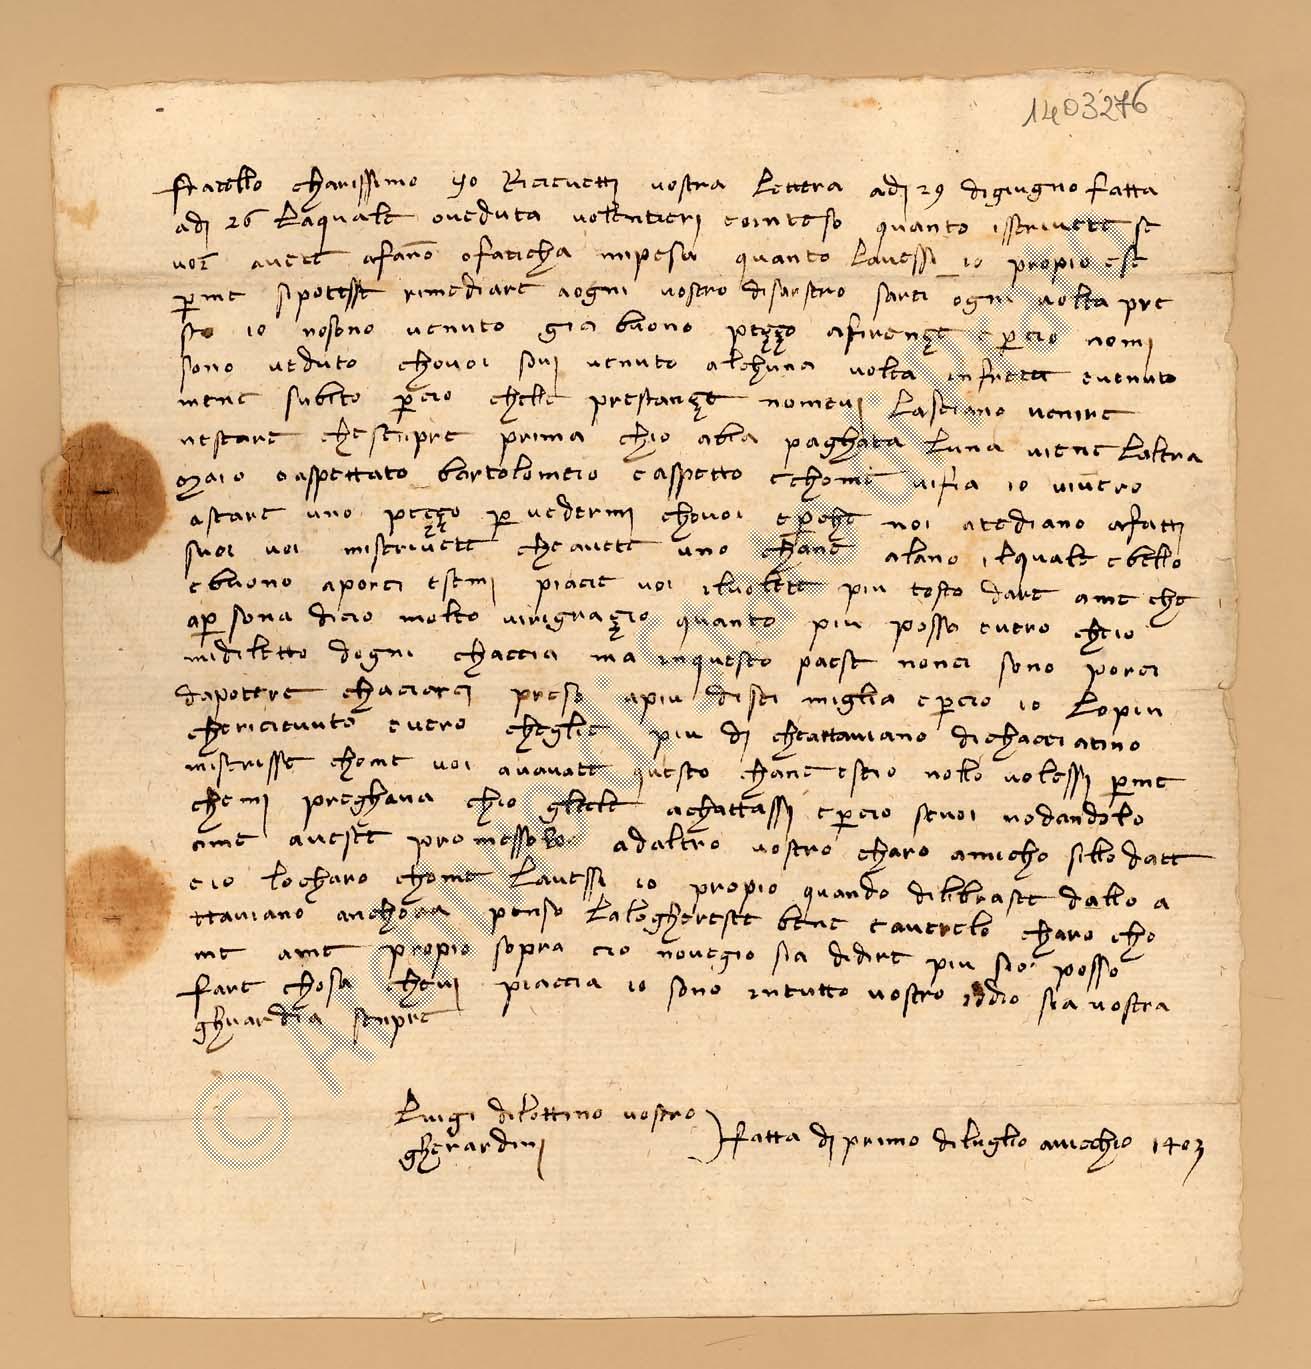 1403276
fratello charissimo Io Ricievetti vostra lettera adj 29 digiugno fatta
adj 26 laquale oveduta volentieri e ointeso quanto isscrivete se
voi avete afanno o faticha mipesa quanto lavessi io propio e se
per me sipotesse rimediare aogni vostro disasstro sarei ogni volta pre
sto io nosono venuto gia buono pezzo afirenze e percio nomi
sono veduto chovoi sovi venuto alchuna volta infretta evenuto
mene subito percio chelle prestanze nomevi lasciano venire
nestare che senpre prima chio abia paghata luna viene laltra
Maio oaspettato bartolomeio e aspetto e chome visia io viverro
astare uno pezzo per vedermi chovoi e perche noi atediano afatti
suoi voi miscrivete che avete uno chane alano ilquale e bello
e buono aporci e semi piacie voi ilvolete piu tosto dare ame che
apersona dicio molto viringrazio quanto piu posso e vero cheio
midiletto dogni chaccia ma inquesto paese nonci sono porci
dapotere chaciarci preso apiu disei miglia e percio io lopiu
chericievuto e vero cheglie piu dj cheattaviano dichacciatino
miscrisse chome voi avavate questo chane e sio nollo volessi per me
chemi preghava chio gliele achattassi e percio sevoi nodandolo
ame aveste promessolo adaltro vostro charo amicho sillo date
e io locharo chome lavessi io propio quando dilibraste dallo a
ttaviano anchora penso laloghereste bene e averelo charo cho
me ame propio sopra cio novegio sia didire piu sio posso
fare chosa chevi piaccia io sono intutto vostro iddio sia vostra
ghuardia senpre
Luigi dilottino vostro
gherardini
fatta dj primo diluglio avicchio 1403